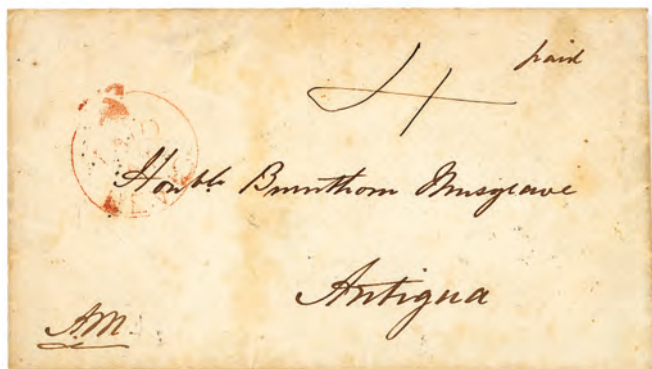 paid
4
PAID
Honble Burnthorn Musgrave
Antigua
AM.